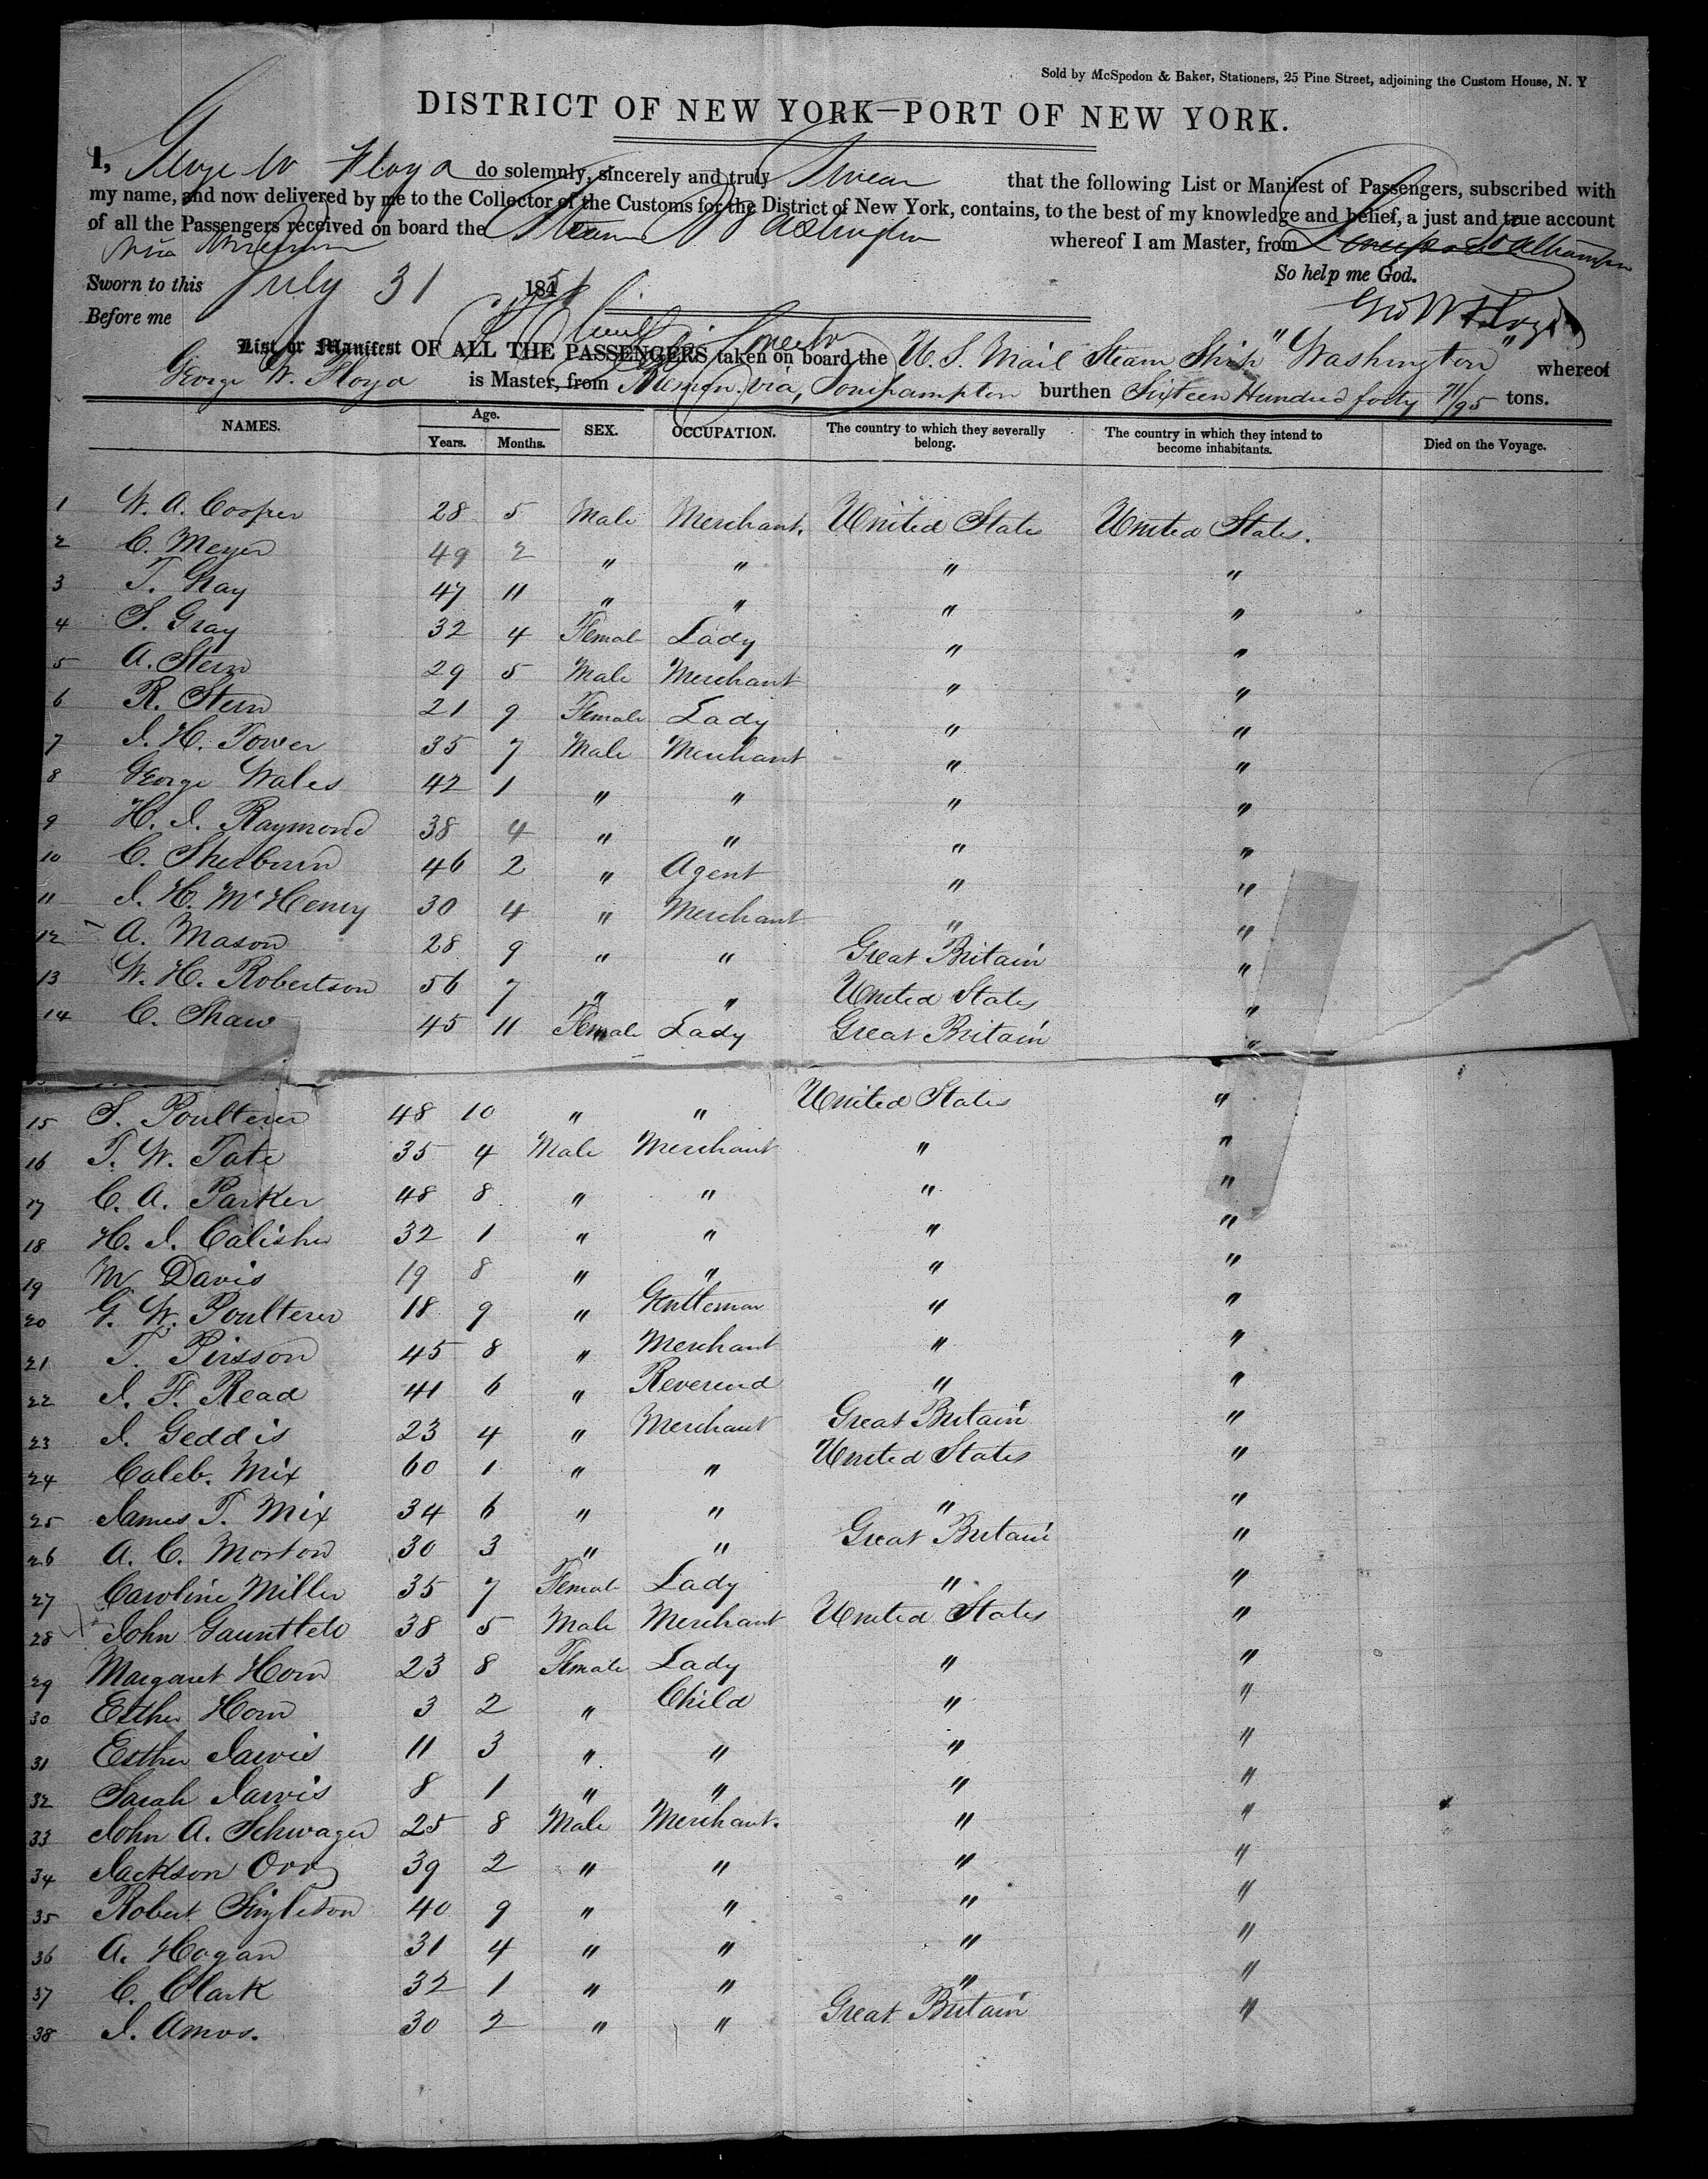 Sold by McSpedon & Baker, Stationers, 25 Pine Street, adjoining the Custom House, N. Y
DISTRICT OF NEW YORK—PORT OF NEW YORK.
I, George W Floyd do solemnly, sincerely and truly Swear that the following List or Manifest of Passengers, subscribed with
my name, and now delivered by me to the Collector of the Customs for the District of New York, contains, to the best of my knowledge and belief, a just and true account
of all the Passengers received on board the Steam Washington whereof I am Master, from Southampton
via Bremen
Sworn to this July 31 1851
So help me God.
Before me
Geo W Floyd
List or Manifest OF ALL THE PASSENGERS taken on board the U. S. Mail Steam Ship "Washington" whereof
George W. Floyd is Master, from Bremen via, Southampton burthen Sixteen Hundred forty 71/95 tons.
NAMES. Age. Years. Months. SEX. OCCUPATION. The country to which they severally belong. The country in which they intend to become inhabitants. Died on the Voyage.
1 W. A. Cooper 28 5 Male Merchant. United States United States.
2 C. Meyer 49 2 " " " "
3 T. Gray 47 11 " " " "
4 S. Gray 32 4 Female Lady " "
5 A. Stern 29 5 Male Merchant " "
6 R. Stern 21 9 Female Lady " "
7 J. H. Tower 35 7 Male Merchant " "
8 George Wales 42 1 " " " "
9 H. J. Raymond 38 4 " " " "
10 C. Sherburn 46 2 " Agent " "
11 J. H. McHenry 30 4 " Merchant " "
12 A. Mason 28 9 " " Great Britain "
13 W. H. Robertson 56 7 " " United States "
14 C. Shaw 45 11 Female Lady Great Britain "
15 S. Poulterer 48 10 " " United States "
16 T. W. Tate 35 4 Male Merchant " "
17 C. A. Parker 48 8 " " " "
18 H. J. Calisher 32 1 " " " "
19 M Davis 19 8 " " " "
20 G. W. Poulterer 18 9 " Gentleman " "
21 T. Pirsson 45 8 " Merchant " "
22 J. F. Read 41 6 " Reverend " "
23 J. Geddis 23 4 " Merchant Great Britain "
24 Caleb. Mix 60 1 " " United States "
25 James T. Mix 34 6 " " " "
26 A. C. Morton 30 3 " " Great Britain "
27 Caroline Miller 35 7 Female Lady " "
28 John Gauntlett 38 5 Male Merchant United States "
29 Margaret Horn 23 8 Female Lady " "
30 Esther Horn 3 2 " Child " "
31 Esther Jarvis 11 3 " " " "
32 Sarah Jarvis 8 1 " " " "
33 John A. Schwager 25 8 Male Merchant. " "
34 Jackson Orr 39 2 " " " "
35 Robert Singleton 40 9 " " " "
36 A. Hogan 31 4 " " " "
37 C. Clark 32 1 " " " "
38 J. Amos. 30 2 " " Great Britain "